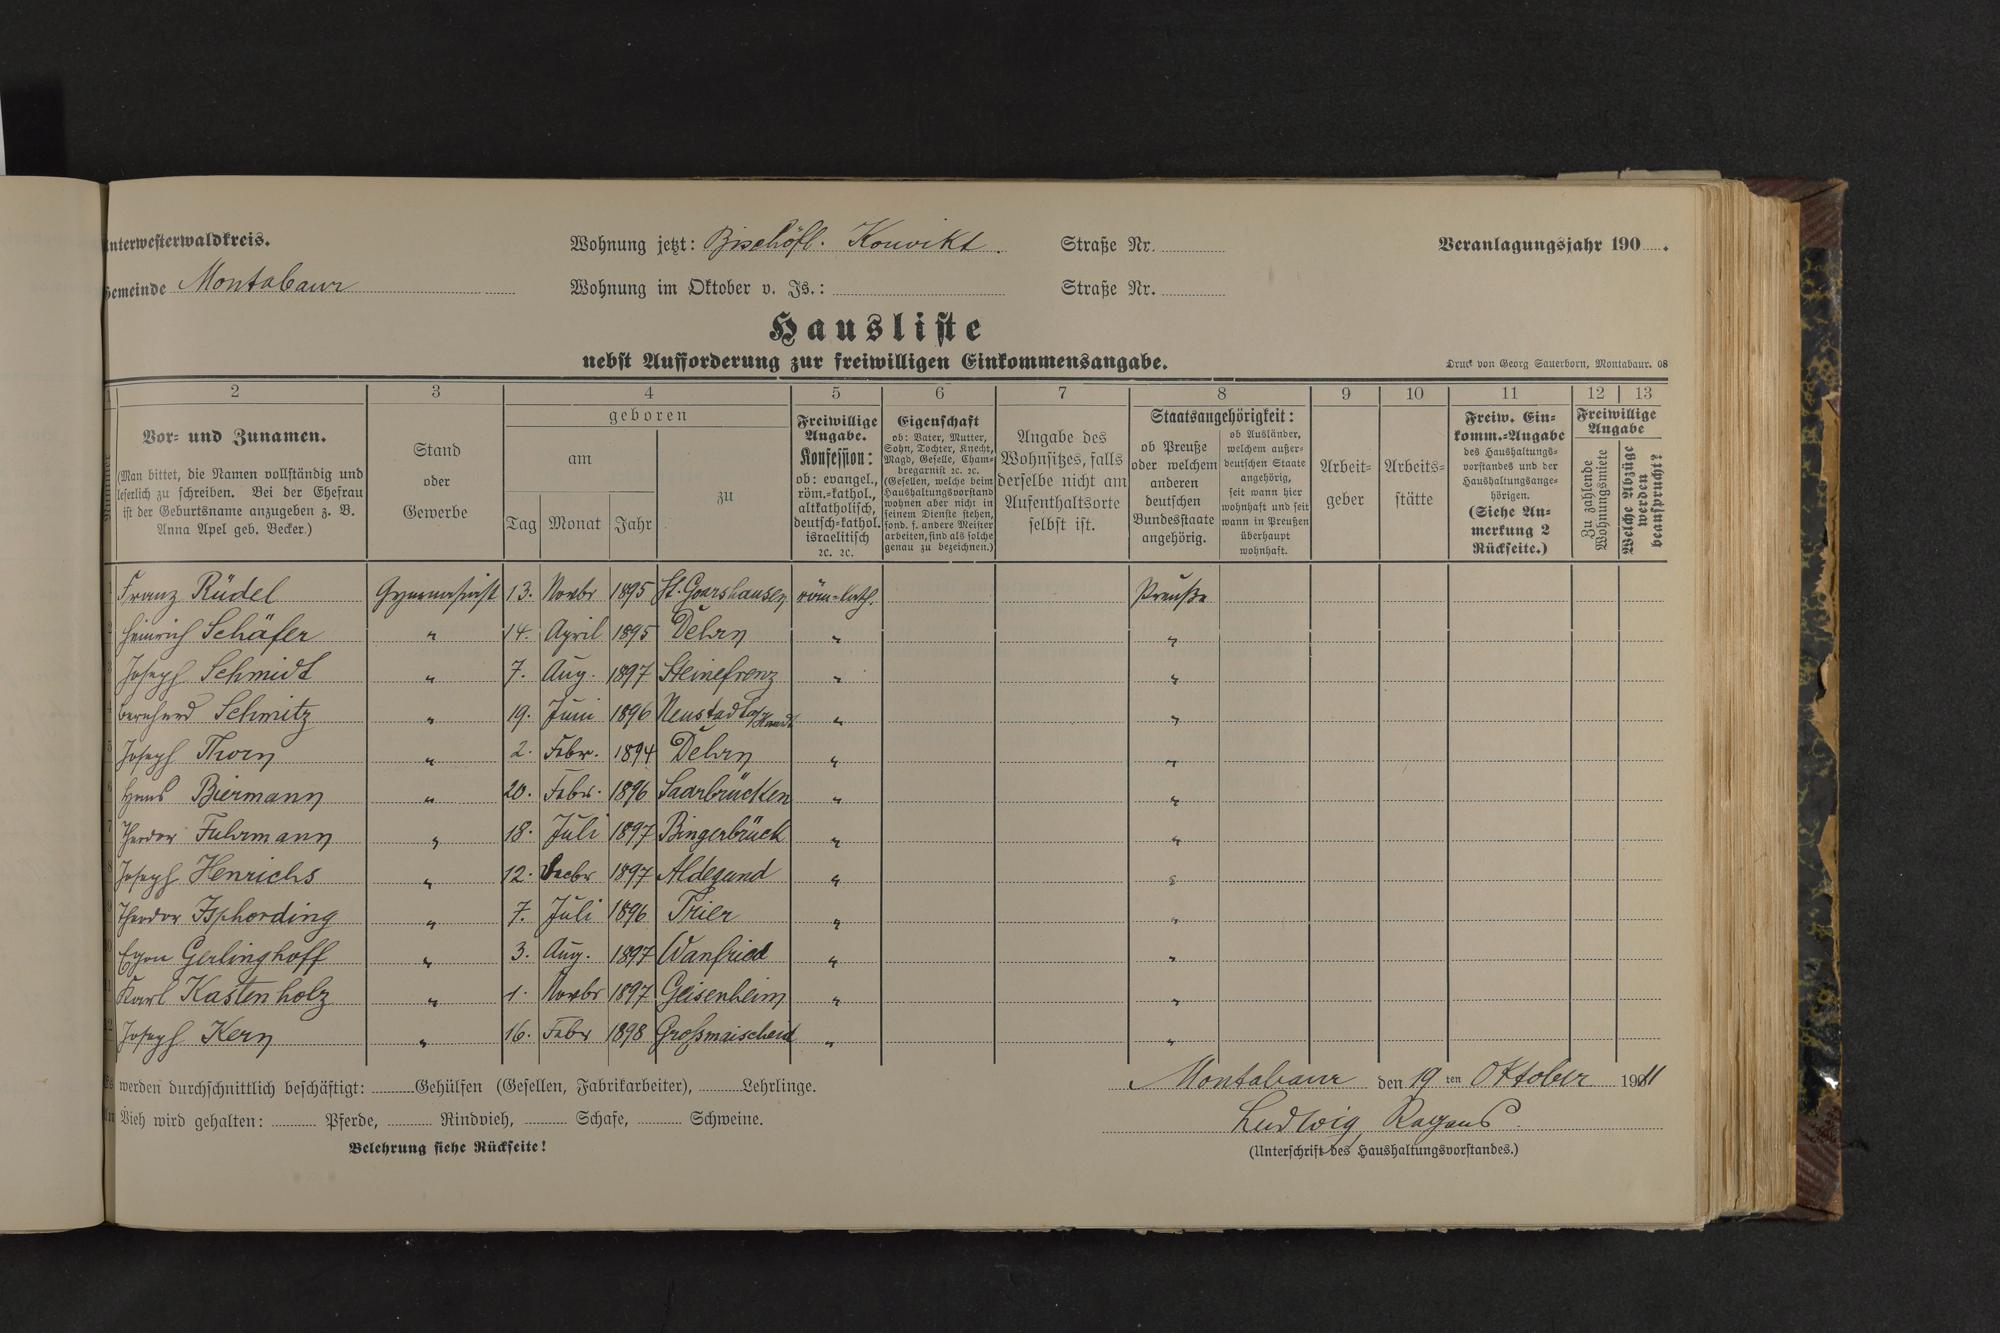 Unterwesterwaldkreis. Wohnung jetzt: Bischöfl. Konvikt. Straße Nr. Veranlagungsjahr 190 .
Gemeinde Montabaur Wohnung im Oktober v. Js.: Straße Nr.
Hausliste
nebst Aufforderung zur freiwilligen Einkommensangabe.
Druck von Georg Sauerborn, Montabaur. 08
1 2 3 4 5 6 7 8 9 10 11 12 13
Nummer
Vor- und Zunamen.
(Man bittet, die Namen vollständig und
leserlich zu schreiben. Bei der Ehefrau
ist der Geburtsname anzugeben z. B.
Anna Apel geb. Becker.)
Stand
oder
Gewerbe
geboren
am
Tag Monat Jahr
zu
Freiwillige
Angabe.
Konfession:
ob: evangel.,
röm.-kathol.,
altkatholisch,
deutsch-kathol.
israelitisch
2c. 2c.
Eigenschaft
ob: Vater, Mutter,
Sohn, Tochter, Knecht,
Magd, Geselle, Cham-
bregarnist 2c. 2c.
(Gesellen, welche beim
Haushaltungsvorstand
wohnen aber nicht in
seinem Dienste stehen,
sond. f. andere Meister
arbeiten, sind als solche
genau zu bezeichnen.)
Angabe des
Wohnsitzes, falls
derselbe nicht am
Aufenthaltsorte
selbst ist.
Staatsangehörigkeit:
ob Preuße
oder welchem
anderen
deutschen
Bundesstaate
angehörig.
ob Ausländer,
welchem außer-
deutschen Staate
angehörig,
seit wann hier
wohnhaft und seit
wann in Preußen
überhaupt
wohnhaft.
Arbeit-
geber
Arbeits-
stätte
Freiw. Ein-
komm.-Angabe
des Haushaltungs-
vorstandes und der
Haushaltungsange-
hörigen.
(Siehe An-
merkung 2
Rückseite.)
Freiwillige
Angabe
Zu zahlende
Wohnungsmiete
Welche Abzüge
werden
beansprucht?
1 Franz Rüdel Gymnasiast 13. Novbr 1895 St. Goarshausen röm-kath. Preuße
2 Heinrich Schäfer " 14. April 1895 Dehrn " "
3 Joseph Schmidt " 7. Aug. 1897 Steinefrenz " "
4 Bernhard Schmitz " 19. Juni 1896 Neustadt a/Haardt " "
5 Joseph Thorn " 2. Febr. 1894 Dehrn " "
6 Hans Biermann " 20. Febr. 1896 Saarbrücken " "
7 Theodor Fuhrmann " 18. Juli 1897 Bingerbrück " "
8 Joseph Henrichs " 12. Decbr 1897 Aldegund " "
9 Theodor Isphording " 7. Juli 1896 Trier " "
10 Egon Gerlinghoff " 3. Aug. 1897 Wanfried " "
11 Karl Kastenholz " 1. Novbr 1897 Geisenheim " "
12 Joseph Kern " 16. Febr 1898 Großmaischeid " "
Es werden durchschnittlich beschäftigt: Gehülfen (Gesellen, Fabrikarbeiter), Lehrlinge.
Montabaur den 19 ten Oktober 1911
An Vieh wird gehalten: Pferde, Rindvieh, Schafe, Schweine.
Ludwig
Belehrung siehe Rückseite!
(Unterschrift des Haushaltungsvorstandes.)